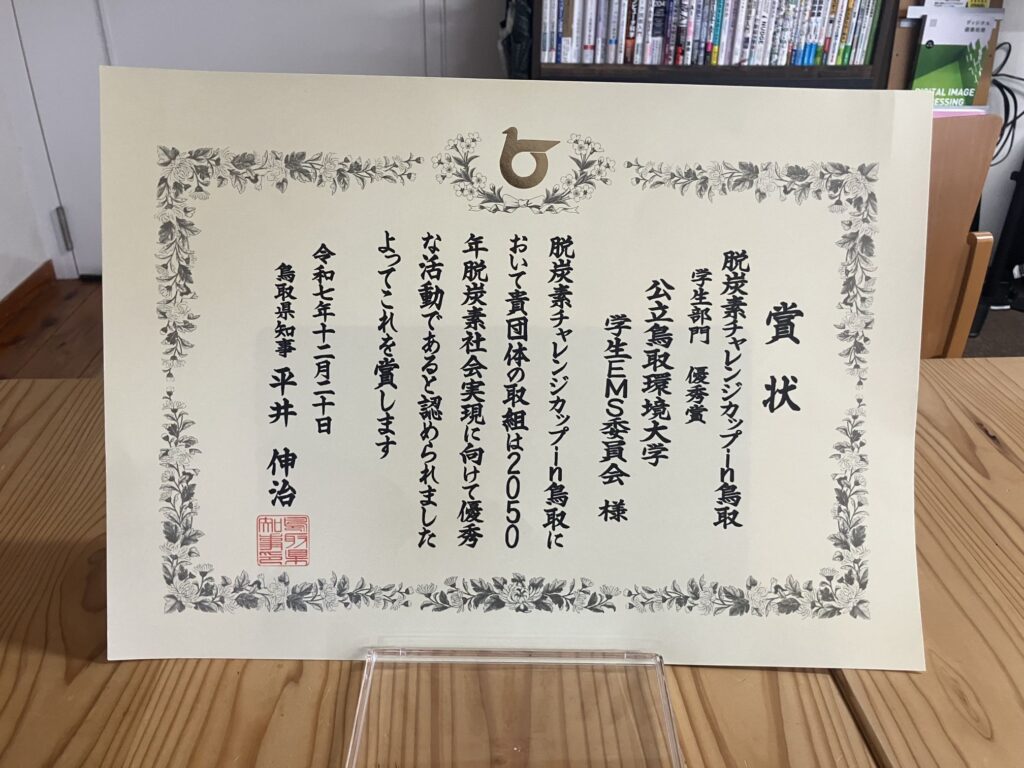 賞状
脱炭素チャレンジカップin鳥取
学生部門 優秀賞
公立鳥取環境大学
学生EMS委員会 様
脱炭素チャレンジカップin鳥取に
おいて貴団体の取組は2050
年脱炭素社会実現に向けて優秀
な活動であると認められました
よってこれを賞します
令和七年十二月二十日
鳥取県知事 平井 伸治
鳥取県
知事印
ディジタル
画像処理
DIGITAL IMAGE
ESSING